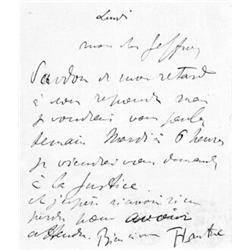 Lundi
mon cher Geffroy
Pardon de mon retard
à vous répondre mais
je voudrais vous parler
demain Mardi à 6 heures
je viendrai vous demander
à la Justice
et j'espère n'avoir rien
perdu pour avoir
attendu. Bien à vous